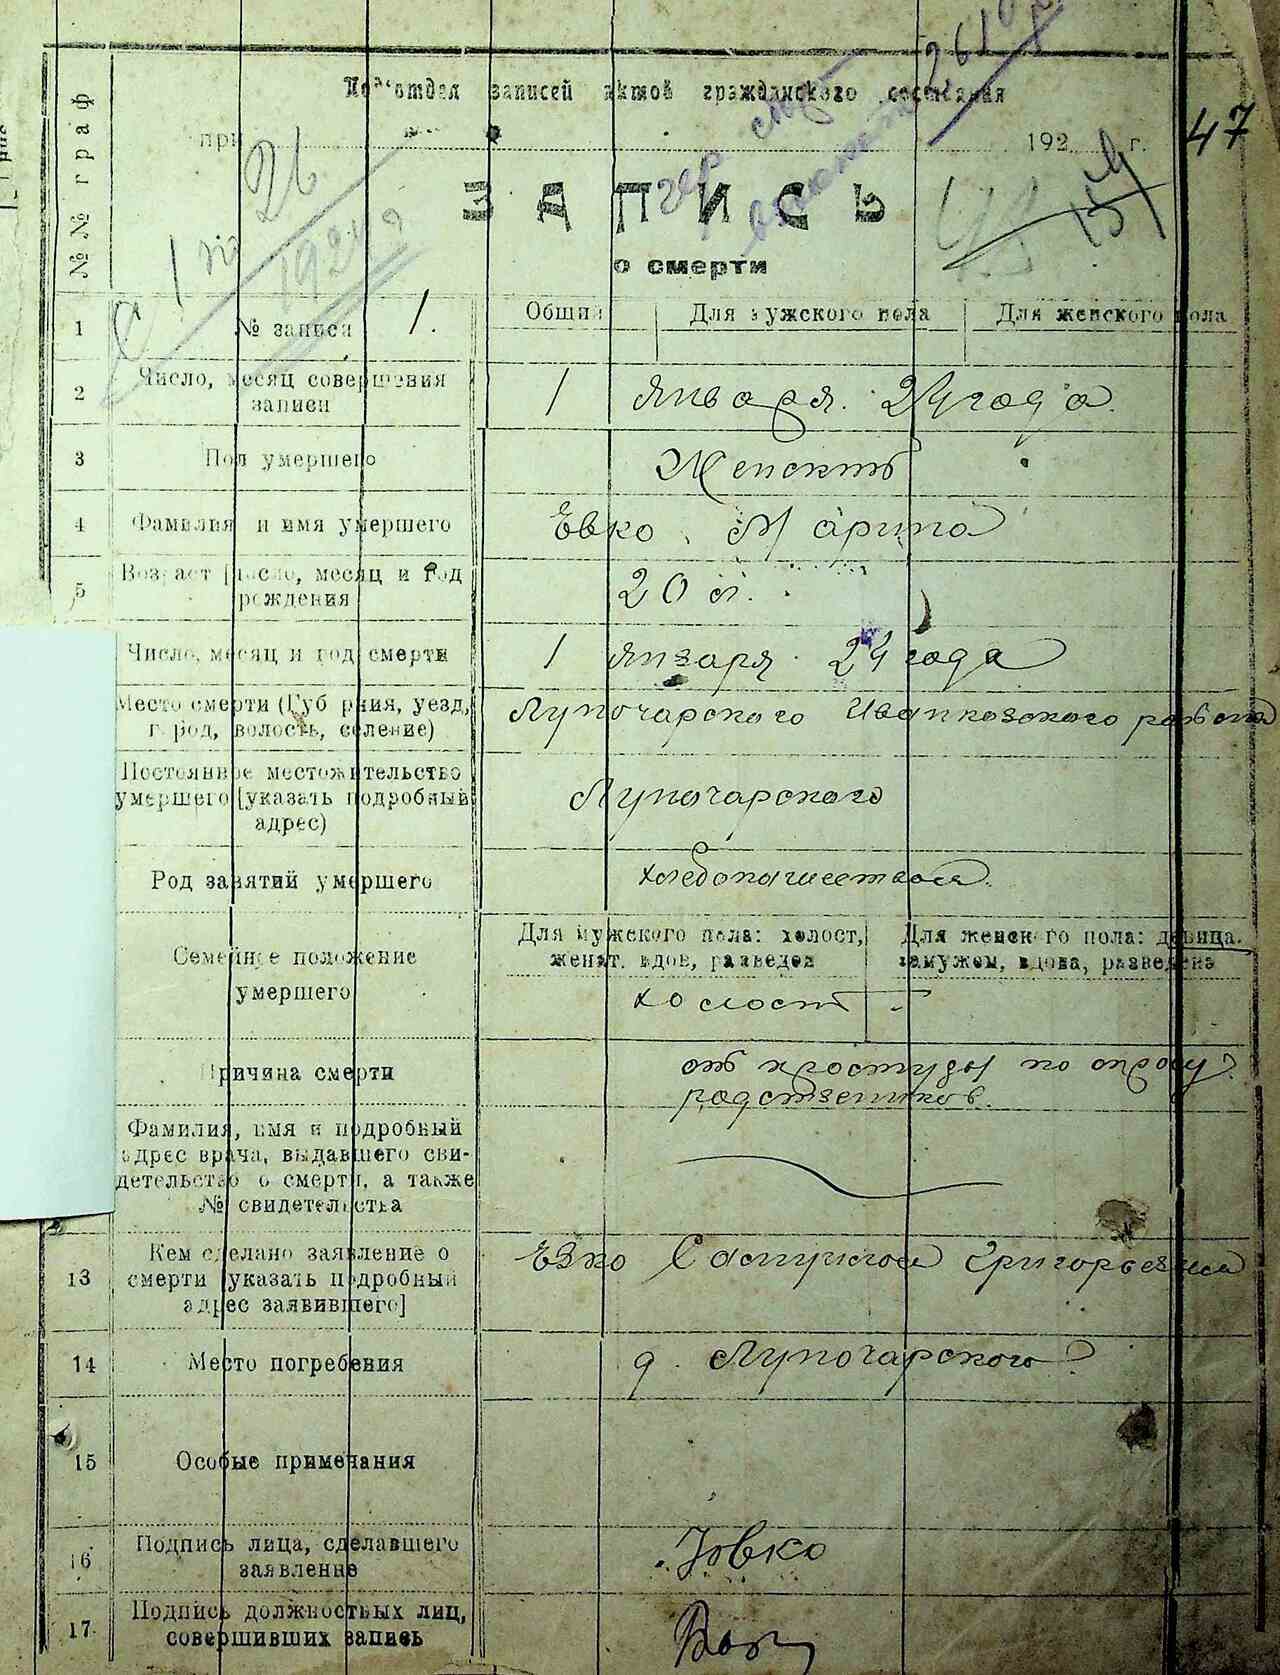 Подотдел записей актов гражданского состояния
при 192 г. 47
26
1924 г
ЗАПИСЬ
о смерти
№№ граф
1 № записи 1. Общий Для мужского пола Для женского пола
2 Число, месяц совершения записи 1 января 24 года.
3 Пол умершего Женский
4 Фамилия и имя умершего Евко Марина
5 Возраст [число, месяц и год рождения 20 л.
Число, месяц и год смерти 1 января 24 года
Место смерти (Губерния, уезд, город, волость, селение) Луночарского района
Постоянное местожительство умершего [указать подробный адрес) Луночарского
Род занятий умершего
Семейное положение умершего
Для мужского пола: холост, женат, вдов, разведен
Для женского пола: девица, замужем, вдова, разведена
холост -
Причина смерти от простуды по опросу
родственников.
Фамилия, имя и подробный адрес врача, выдавшего свидетельство о смерти, а также № свидетельства
13 Кем сделано заявление о смерти [указать подробный адрес заявившего] Евко Григорьевич
14 Место погребения д. Луночарского
15 Особые примечания
16 Подпись лица, сделавшего заявление Ювко
17 Подпись должностных лиц, совершивших запись